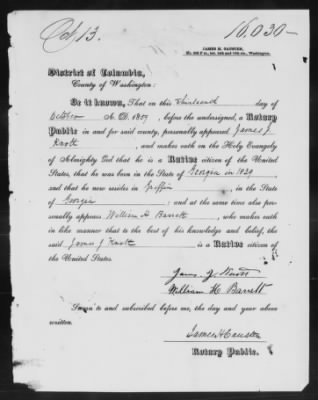 Oct 13. 16,030-
JAMES H. CAUSTEN,
District of Columbia,
County of Washington:
Be it known, That on this thirteenth day of
October A. D. 1859, before the undersigned, a Notary
Public in and for said county, personally appeared James J.
Knott, and makes oath on the Holy Evangely
of Almighty God that he is a Native citizen of the United
States, that he was born in the State of Georgia in 1829
and that he now resides in Griffin, in the State
of Georgia: and at the same time also per-
sonally appears William H. Barrett, who makes oath
in like manner that to the best of his knowledge and belief, the
said James J. Knott is a Native citizen of
the United States.
James J. Knott
William H Barrett
Sworn to and subscribed before me, the day and year above
written.
James H Causten
Notary Public.